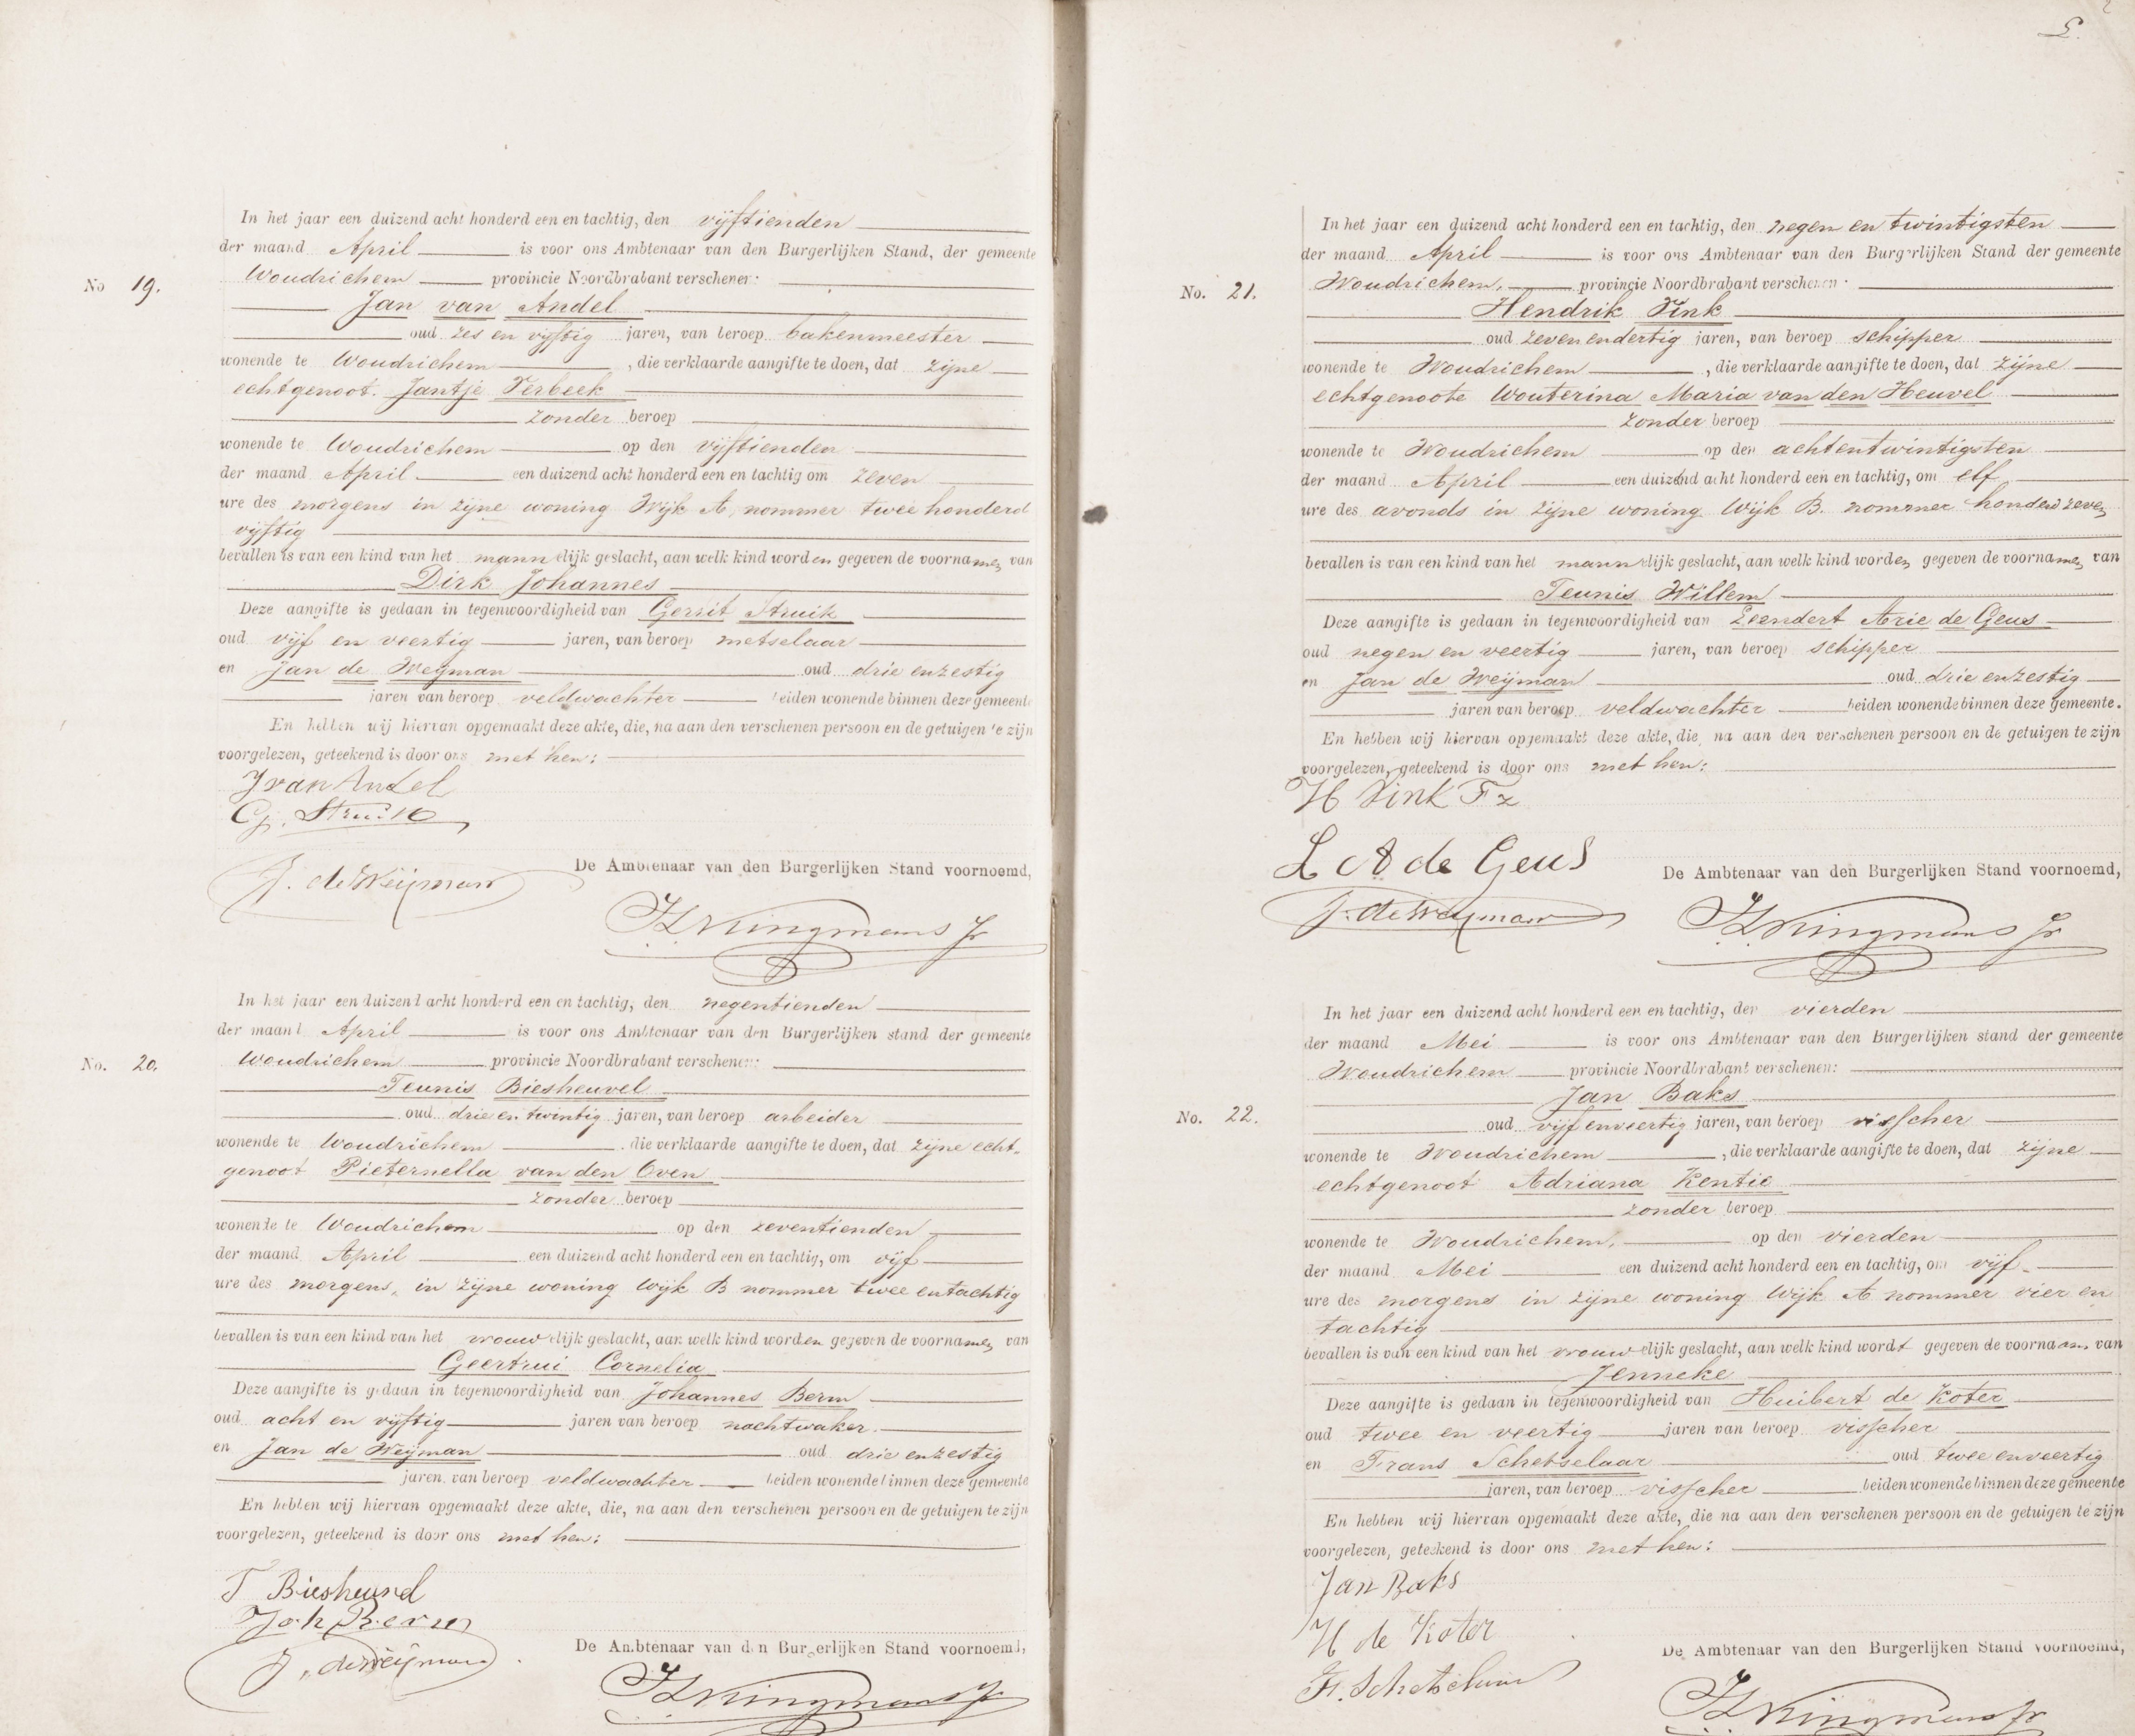 No 19.
In het jaar een duizend acht honderd een en tachtig, den vijftienden
der maand April is voor ons Ambtenaar van den Burgerlijken Stand, der gemeente
Woudrichem provincie Noordbrabant verschenen:
Jan van Andel
oud zes en vijftig jaren, van beroep bakenmeester
wonende te Woudrichem, die verklaarde aangifte te doen, dat zijne
echtgenoot. Jantje Verbeek
zonder beroep
wonende te Woudrichem op den vijftienden
der maand April een duizend acht honderd een en tachtig om zeven
ure des morgens in zijne woning Wijk A, nommer twee honderd
vijftig
bevallen is van een kind van het mannelijk geslacht, aan welk kind worden gegeven de voornamen van
Dirk Johannes
Deze aangifte is gedaan in tegenwoordigheid van Gerrit Struik
oud vijf en veertig jaren, van beroep metselaar
en Jan de Weijman oud drie enzestig
jaren van beroep veldwachter beiden wonende binnen deze gemeente
En hebben wij hiervan opgemaakt deze akte, die, na aan den verschenen persoon en de getuigen te zijn
voorgelezen, geteekend is door ons met hen:
J van Andel
G. Struik
J. de Weijman
De Ambtenaar van den Burgerlijken Stand voornoemd,
Kingmans Jr
No. 20.
In het jaar een duizend acht honderd een en tachtig, den negentienden
der maand April is voor ons Ambtenaar van den Burgerlijken stand der gemeente
Woudrichem provincie Noordbrabant verschenen:
Teunis Biesheuvel
oud drie en twintig jaren, van beroep arbeider
wonende te Woudrichem. die verklaarde aangifte te doen, dat zijne echt-
genoot Pieternella van den Oven
zonder beroep
wonende te Woudrichem op den zeventienden
der maand April een duizend acht honderd een en tachtig, om vijf
ure des morgens, in zijne woning Wijk B nommer twee entachtig
bevallen is van een kind van het vrouwelijk geslacht, aan welk kind worden gegeven de voornamen van
Geertrui Cornelia
Deze aangifte is gedaan in tegenwoordigheid van Johannes Berm
oud acht en vijftig jaren van beroep nachtwaker.
en Jan de Weijman oud drie enzestig
jaren, van beroep veldwachter beiden wonende binnen deze gemeente
En hebben wij hiervan opgemaakt deze akte, die, na aan den verschenen persoon en de getuigen te zijn
voorgelezen, geteekend is door ons met hen:
T Biesheuvel
Joh Berm
J. de Weijman
De Ambtenaar van den Burgerlijken Stand voornoemd,
Kingmans Jr
No. 21.
In het jaar een duizend acht honderd een en tachtig, den negen en twintigsten
der maand April is voor ons Ambtenaar van den Burgerlijken Stand der gemeente
Woudrichem, provincie Noordbrabant verschenen:
Hendrik Vink
oud zevenendertig jaren, van beroep schipper
wonende te Woudrichem, die verklaarde aangifte te doen, dat zijne
echtgenoote Wouterina Maria van den Heuvel
zonder beroep
wonende te Woudrichem op den achtentwintigsten
der maand April een duizend acht honderd een en tachtig, om elf
ure des avonds in zijne woning Wijk B. nommer honderd zeven
bevallen is van een kind van het mannelijk geslacht, aan welk kind worden gegeven de voornamen van
Teunis Willem
Deze aangifte is gedaan in tegenwoordigheid van Leendert Arie de Geus
oud negen en veertig jaren, van beroep schipper
en Jan de Weijman oud drie enzestig
jaren van beroep veldwachter beiden wonende binnen deze gemeente.
En hebben wij hiervan opgemaakt deze akte, die, na aan den verschenen persoon en de getuigen te zijn
voorgelezen, geteekend is door ons met hen:
H Vink Fz
L A de Geus
J. de Weijman
De Ambtenaar van den Burgerlijken Stand voornoemd,
Kingmans Jr
No. 22.
In het jaar een duizend acht honderd een en tachtig, den vierden
der maand Mei is voor ons Ambtenaar van den Burgerlijken stand der gemeente
Woudrichem provincie Noordbrabant verschenen:
Jan Baks
oud vijf enveertig jaren, van beroep visscher
wonende te Woudrichem, die verklaarde aangifte te doen, dat zijne
echtgenoot Adriana Kentie
zonder beroep
wonende te Woudrichem, op den vierden
der maand Mei een duizend acht honderd een en tachtig, om vijf
ure des morgens in zijne woning Wijk A nommer vier en
tachtig
bevallen is van een kind van het vrouwelijk geslacht, aan welk kind wordt gegeven de voornaam van
Jenneke
Deze aangifte is gedaan in tegenwoordigheid van Huibert de Koter
oud twee en veertig jaren van beroep visscher
en Frans Schetselaar oud twee enveertig
jaren, van beroep visscher beiden wonende binnen deze gemeente
En hebben wij hiervan opgemaakt deze akte, die na aan den verschenen persoon en de getuigen te zijn
voorgelezen, geteekend is door ons met hen:
Jan Baks
H de Koter
F. Schetselaar
De Ambtenaar van den Burgerlijken Stand voornoemd,
Kingmans Jr